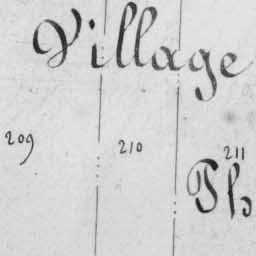 Village
209 210 211
Th